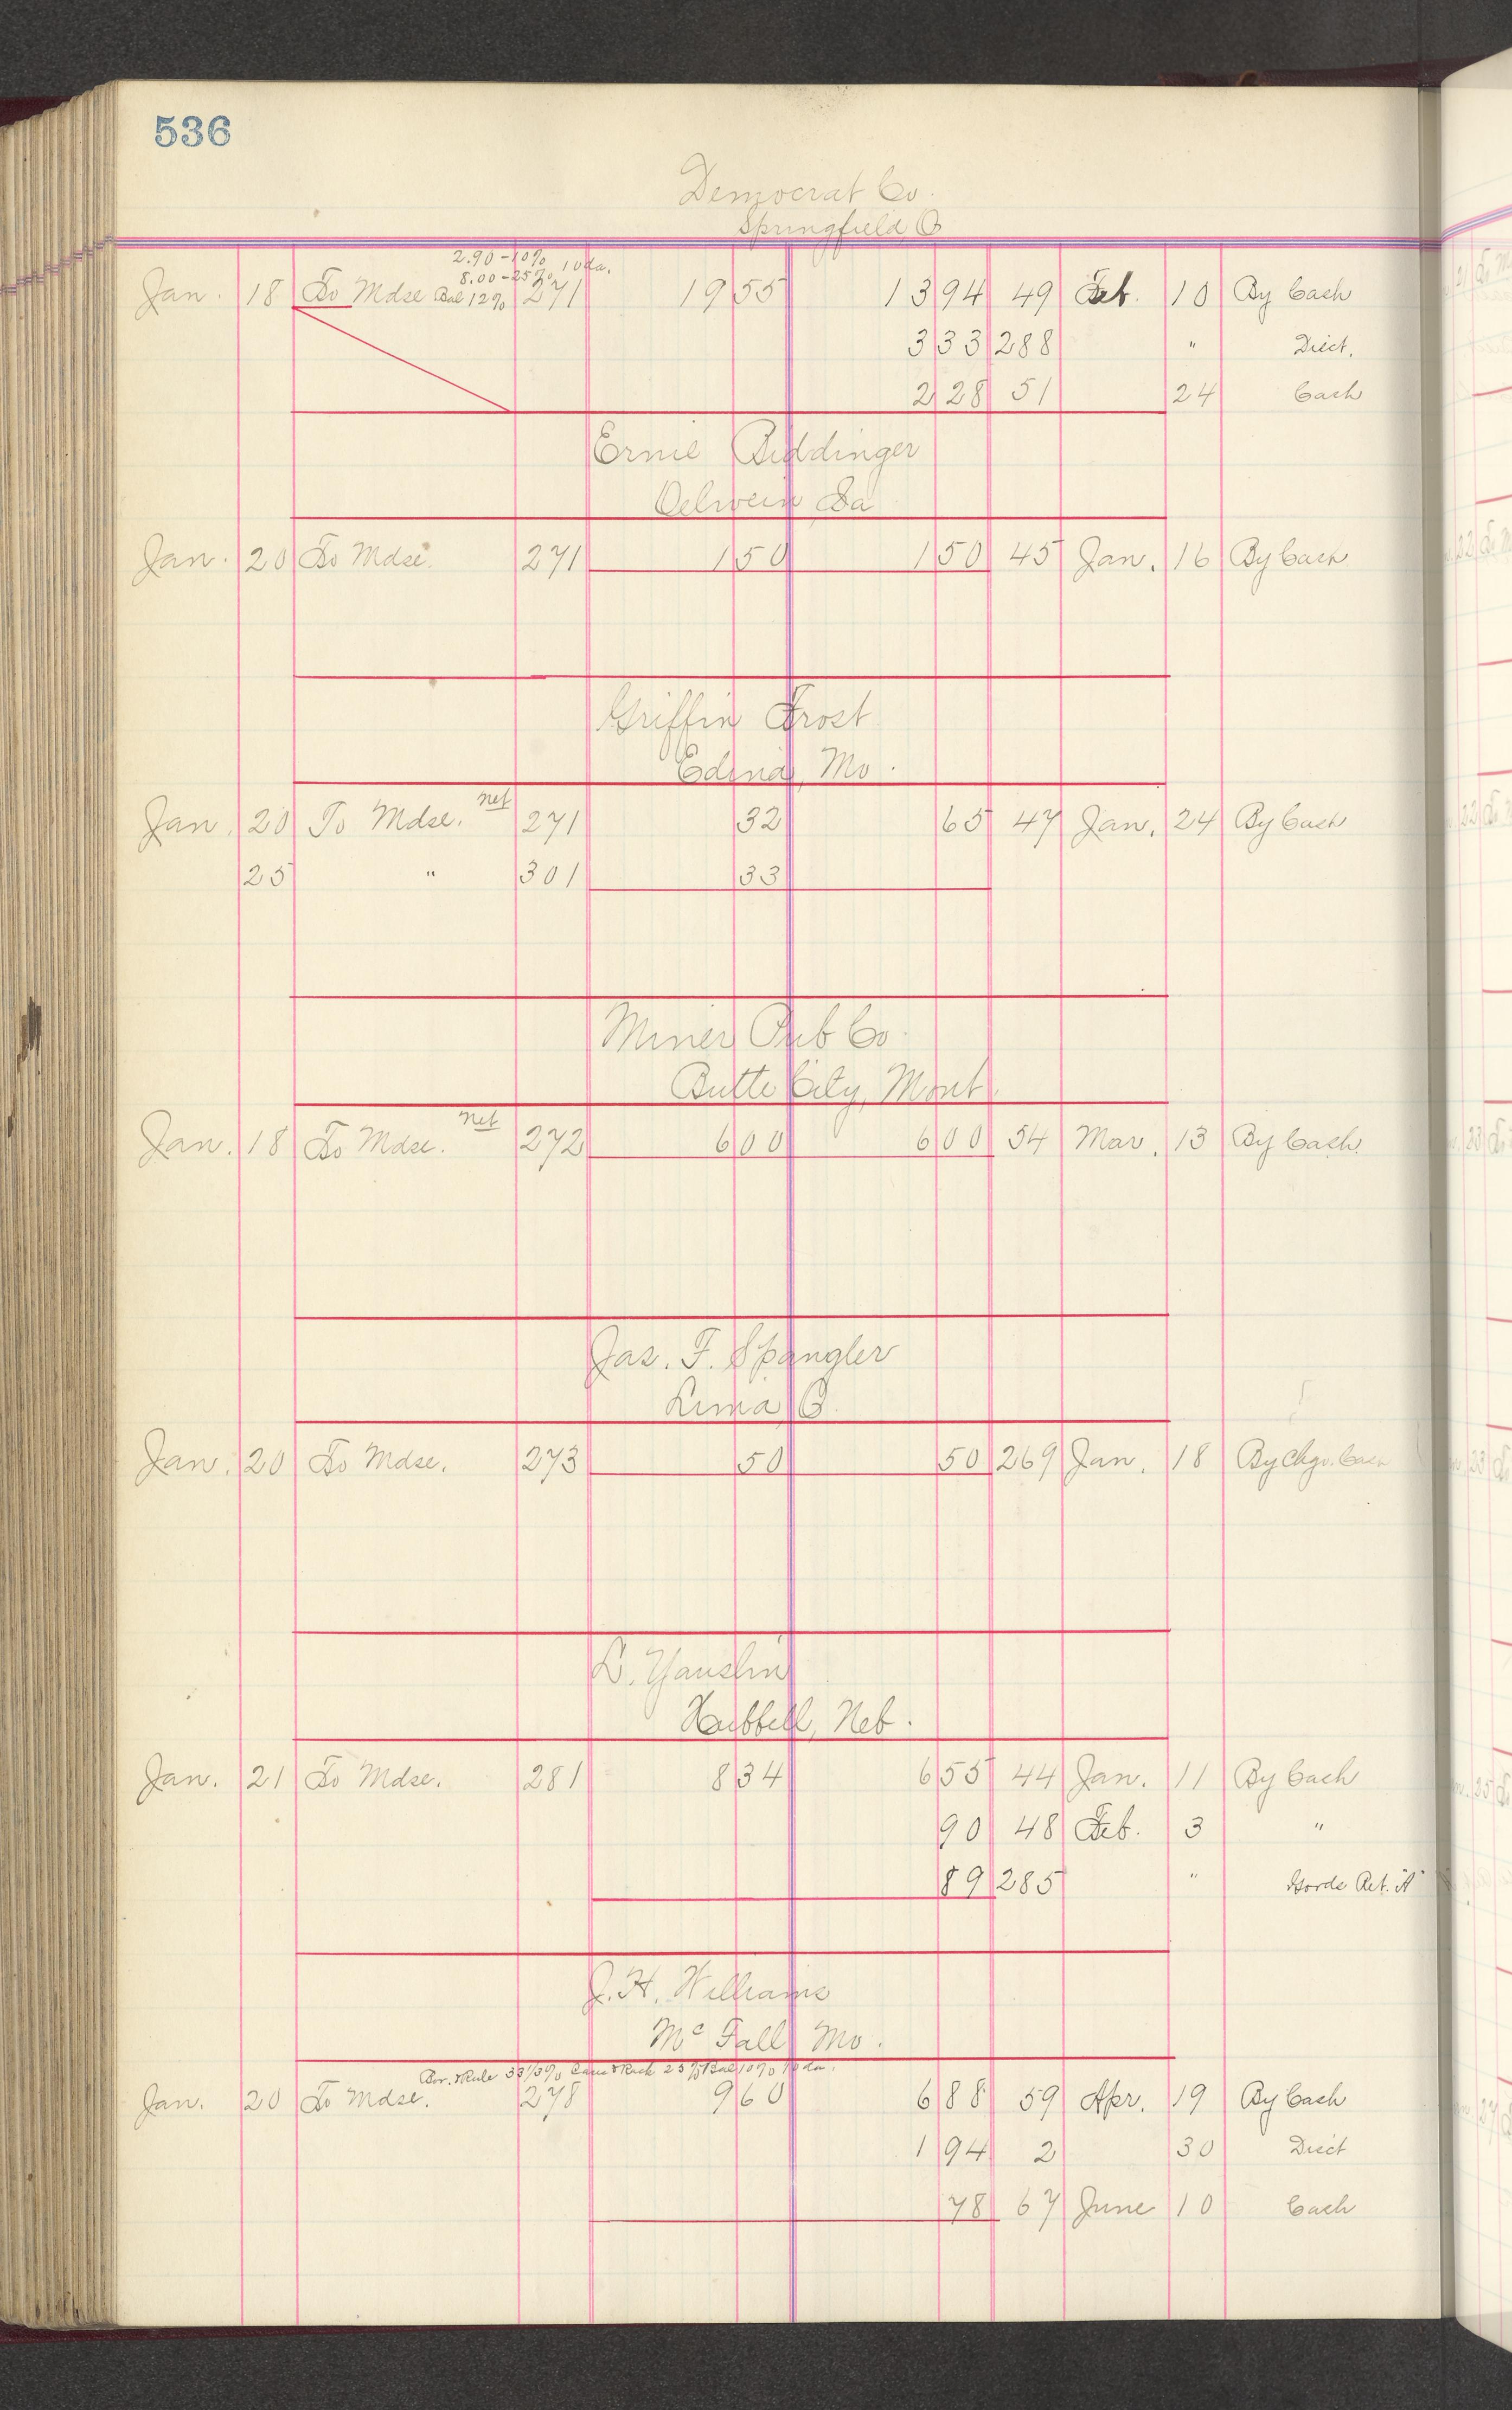 536
Democrat Co.
Springfield, O
2.90 - 10% 10 da.
8.00 - 25%
Jan. 18 To Mdse Bal 12% 271 19 55 13 94 49 Feb. 10 By Cash
3 33 288 " Disct.
2 28 51 24 Cash
Ernie Biddinger
Oelwein Ia
Jan. 20 To Mdse. 271 1 50 1 50 45 Jan. 16 By Cash
Griffin Frost
Edina, Mo.
Jan. 20 To Mdse. net 271 32 65 47 Jan. 24 By Cash
25 " 301 33
Miner Pub Co.
Butte City, Mont.
Jan. 18 To Mdse. net 272 6 00 6 00 54 Mar. 13 By Cash.
Jas. F. Spangler
Lima, O.
Jan. 20 To Mdse. 273 50 50 269 Jan. 18 By Chgo. Cash
L. Yauslin
Hubbell, Neb.
Jan. 21 To Mdse. 281 8 34 6 55 44 Jan. 11 By Cash
90 48 Feb. 3 "
89 285 " Goods Ret. "A"
J. H. Williams
Mc Fall, Mo.
Bor. & Rule 33 1/3% Case & Rack 25% Bal 10% 10 da.
Jan. 20 To Mdse. 278 9 60 6 88 59 Apr. 19 By Cash
1 94 2 30 Disct
78 67 June 10 Cash